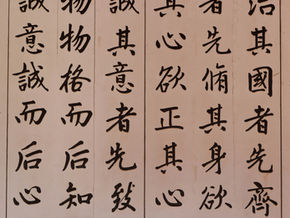 治其國者先齊
者先脩其身欲
其心欲正其心
誠其意者先致
物物格而后知
誠意誠而后心